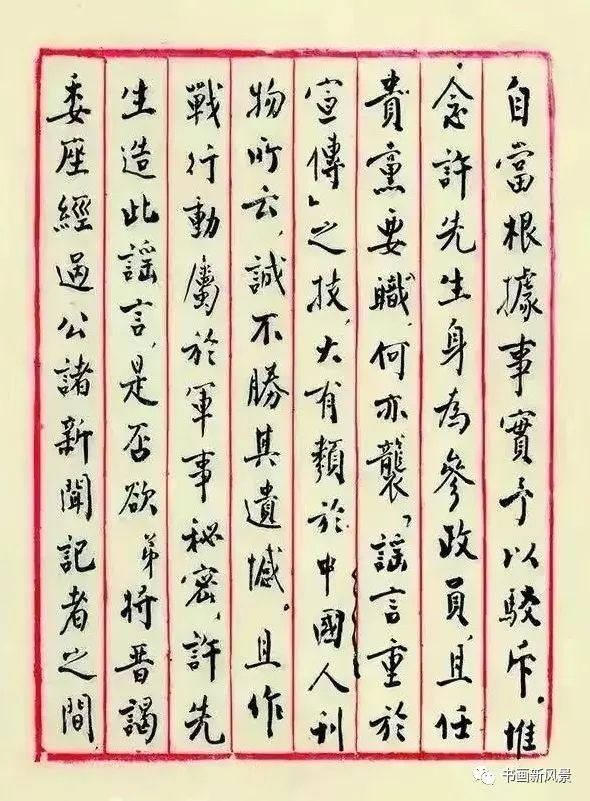 自當根據事實予以駁斥。惟
念許先生身為參政員，且任
貴黨要職，何亦襲「謠言重於
宣傳」之技，大有類於中國人刊
物所云，誠不勝其遺憾。且作
戰行動屬於軍事秘密，許先
生造此謠言，是否欲弟將晉謁
委座經過公諸新聞記者之間
书画新风景